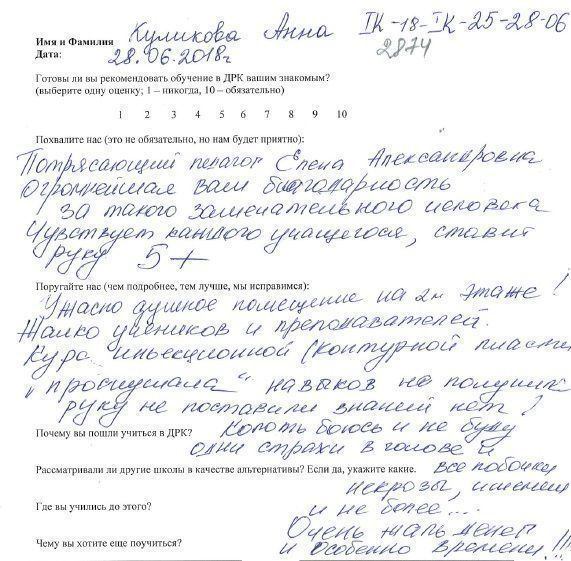 Имя и Фамилия Куликова Анна IK-18-IK-25-28-06
Дата: 28.06.2018г 2874
Готовы ли вы рекомендовать обучение в ДРК вашим знакомым?
(выберите одну оценку; 1 – никогда, 10 – обязательно)
1 2 3 4 5 6 7 8 9 10
Похвалите нас (это не обязательно, но нам будет приятно):
Потрясающий педагог Елена Александровна
Огромнейшая вам благодарность
за такого замечательного человека
Чувствует каждого учащегося, ставит
руку 5+
Поругайте нас (чем подробнее, тем лучше, мы исправимся):
Ужасно душное помещение на 2м этаже!
Жалко учеников и преподавателей.
Курс инъекционной (контурной пласти
"прослушала" навыков не получила
руку не поставили знаний нет!
Почему вы пошли учиться в ДРК? Колоть боюсь и не буду
одни страхи в голове и
Рассматривали ли другие школы в качестве альтернативы? Если да, укажите какие. все побочки
некрозы, ишемии
Где вы учились до этого? и не более...
Очень жаль денег
Чему вы хотите еще поучиться? и особенно времени!!!